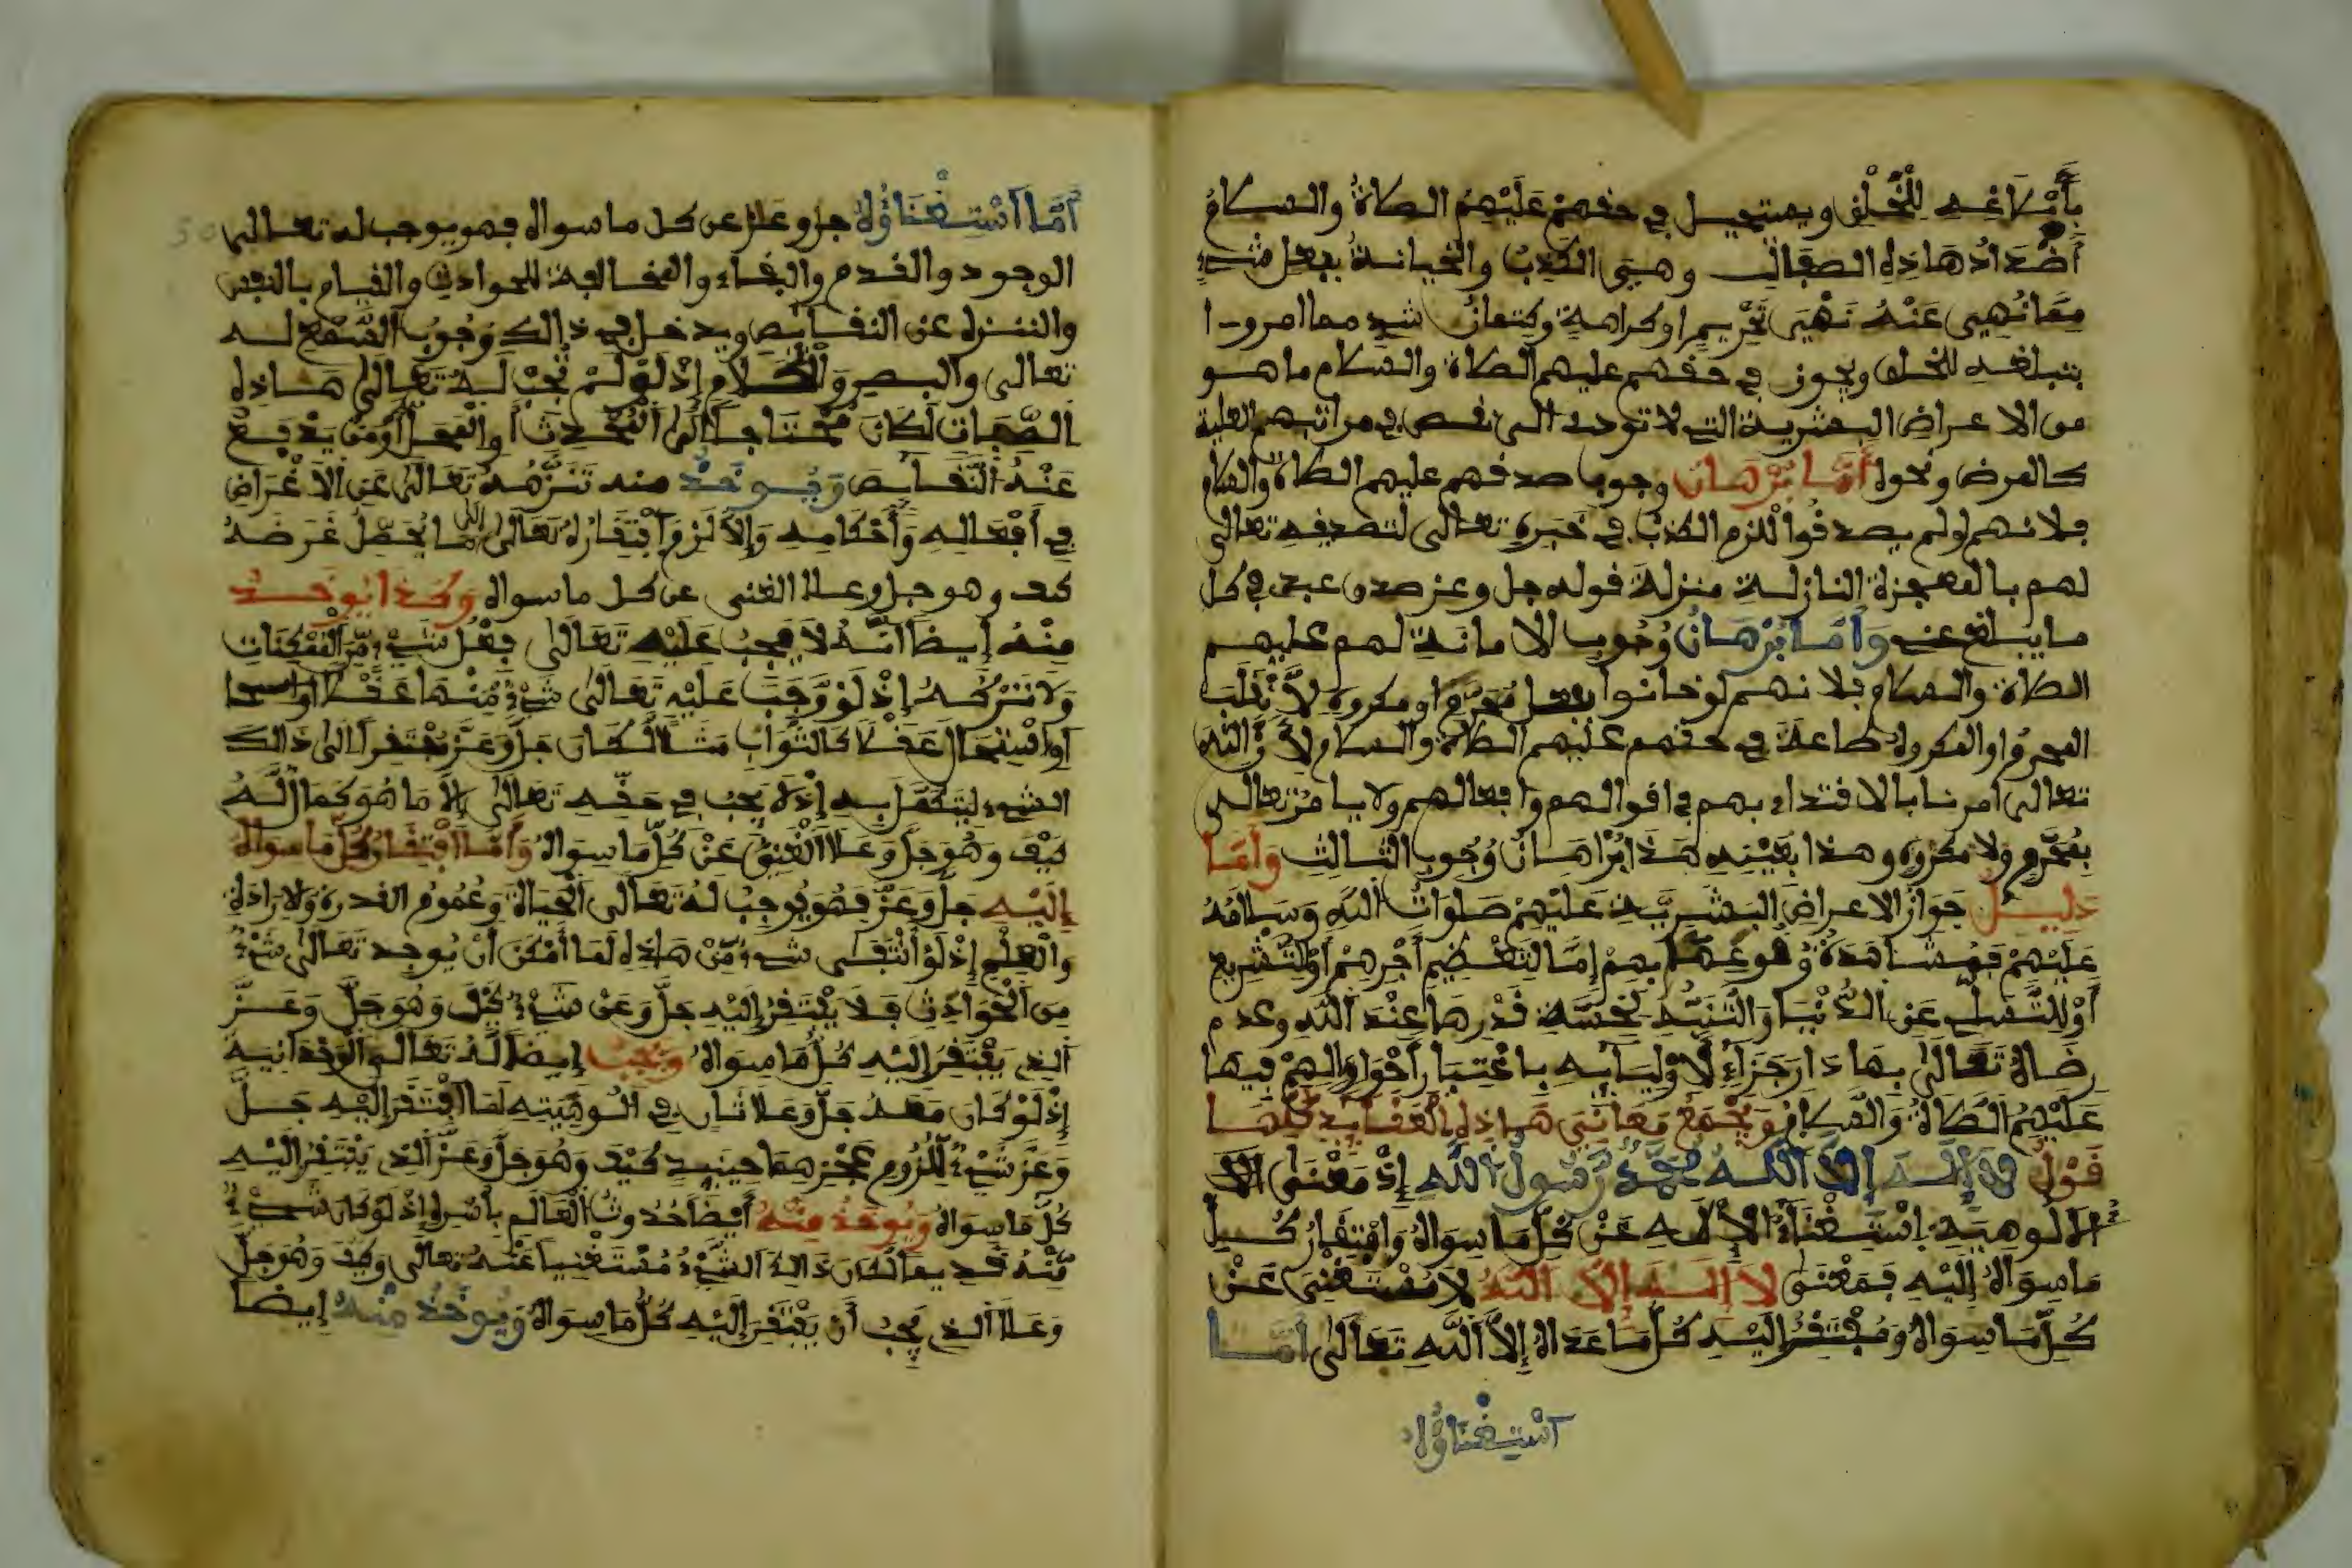 بِإِبْلَاغِهِ لِلْخَلْقِ ويستحيل في حقهمْ عَلَيْهِمُ الصلاةُ والسلامُ
أَضْدَادُ هَاذِهِ الصفات وهيَ الكَذِبُ والخيانةُ بفعل شيءٍ
مِمَّا نُهِيَ عَنْهُ نَهْيَ تَحْرِيمٍ او كراهةٍ وكِتمانُ شيءٍ مما امروا
بتبليغه للخلق ويجوز في حقهم عليهم الصلاة والسلام ما هو
من الاعراض البشرية التي لا تودي الى نقص في مراتبهم العلية
كالمرض ونحوه أَمَّا بُرْهَانُ وجوب صدقهم عليهم الصلاة والسلام
فلانهم لو لم يصدقُوا للزم الكذبُ في خبره تعالى لتصديقه تعالى
لهم بالمعجزة النازلة منزلة قوله جل وعز صدق عبدي في كل
ما يبلغ عني وَأَمَّا بُرْهَانُ وُجُوبِ الامانة لهم عليهم
الصلاة والسلام فلانهم لو خانوا بفعل مُحَرَّمٍ او مكروهٍ لَانْقَلَبَ
المحرمُ او المكروه طاعة في حقهم عليهم الصلاة والسلام لِأَنَّ اللهَ
تعالى امرنا بالاقتداء بهم في اقوالهم وافعالهم ولا يامرُ تعالى
بِمُحَرَّمٍ ولا مكروهٍ وهذا بِعَيْنِهِ هَذَا بُرْهَانُ وُجُوبِ الثالث وَأَمَّا
دَلِيلُ جَوَازُ الاعراض البَشَرِيَّةِ عَلَيْهِمْ صَلَوَاتُ اللَّهِ وَسَلَامُهُ
عَلَيْهِمْ فَمُشَاهَدَةُ وُقُوعِهَا بِهِمْ إِمَّا لِتَعْظِيمِ أَجْرِهِمْ أَوْ لِلتَّشْرِيعِ
أَوْ لِلتَّسَلِّي عَنِ الدُّنْيَا وَالتَّنَبُّهِ لِخِسَّةِ قَدْرِهَا عِنْدَ اللَّهِ وعدم
رضاه تَعَالَى بِهَا دَارَ جَزَاءٍ لِأَوْلِيَائِهِ بِاعْتِبَارِ أَحْوَالِهِمْ فِيهَا
عَلَيْهِمُ الصَّلَاةُ وَالسَّلَامُ وَيَجْمَعُ مَعَانِيَ هَاذِهِ الْعَقَايِدِ كُلِّهَا
قَوْلُ لَا إِلَهَ إِلَّا اللَّهُ مُحَمَّدٌ رَسُولُ اللَّهِ إِذْ مَعْنَى الا
الالوهية إِسْتِغْنَاءُ الْإِلَهِ عَنْ كُلِّ مَا سِوَاهُ وَافْتِقَارُ كُلِّ
مَا سِوَاهُ إِلَيْهِ فَمَعْنَى لَا إِلَهَ إِلَّا اللَّهُ لَا مُسْتَغْنِيَ عَنْ
كُلِّ مَا سِوَاهُ وَمُفْتَقِرٌ إِلَيْهِ كُلُّ مَا عَدَاهُ إِلَّا اللَّهِ تَعَالَى أَمَّا
اسْتِغْنَاؤُهُ
أَمَّا اسْتِغْنَاؤُهُ جل وعلا عن كل ما سواه فهو يوجب له تعالى
الوجود والقدم والبقاء والمخالفة للحوادث والقيام بالنفس
والتنزه عن النقايص ويدخل في ذالك وُجُوبُ السَّمْعِ له
تعالى والبصر وَالْكَلَامِ إِذْ لَوْ لَمْ تَجِبْ لَهُ تَعَالَى هَاذِهِ
الصِّفَاتُ لَكَانَ مُحْتَاجًا إِلَى الْمُحْدِثِ أَوِ الْمَحَلِّ أَوْ مَنْ يَدْفَعُ
عَنْهُ النَّقَائِصَ وَيُوخَذُ منه تَنَزُّهُهُ تَعَالَى عَنِ الْأَغْرَاضِ
فِي أَفْعَالِهِ وَأَحْكَامِهِ وَإِلَّا لَزِمَ افْتِقَارُهُ تَعَالَى إِلَى مَا يُحَصِّلُ غَرَضَهُ
كيف وهو جل وعلا الغني عن كل ما سواه وَكَذَا يُوخَذُ
مِنْهُ إيضا أَنَّهُ لَا يَجِبُ عَلَيْهِ تَعَالَى فِعْلُ شَيْءٍ مِّنَ الْمُمْكِنَاتِ
وَلَا تَرْكُهُ إِذْ لَوْ وَجَبَ عَلَيْهِ تَعَالَى شَيْءٌ مِّنْهَا عَقْلًا
أَوِ اسْتِحَالَ عَقْلًا كَالثَّوَابِ مَثَلًا لَكَانَ جَلَّ وَعَزَّ مُفْتَقِرًا إِلَى ذَالِكَ
الشيءِ لِيَتَكَمَّلَ بِهِ إِذْ لَا يَجِبُ فِي حَقِّهِ تَعَالَى إِلَّا مَا هُوَ كَمَالٌ لَّهُ
كَيْفَ وَهُوَ جَلَّ وَعَلَا الْغَنِيُّ عَنْ كُلِّ مَا سِوَاهُ وَأَمَّا افْتِقَارُ كُلِّ مَا سِوَاهُ
إِلَيْهِ جَلَّ وَعَزَّ فَهُوَ يُوجِبُ لَهُ تَعَالَى الْحَيَاةَ وَعُمُومَ القدرة وَالْإِرَادَةِ
وَالْعِلْمِ إِذْ لَوْ انْتَفَى شيءٌ مِّنْ هَاذِهِ لَمَا أَمْكَنَ أَنْ يُوجِدَ تَعَالَى شَيْءٌ
مِنَ الْحَوَادِثِ فَلَا يَفْتَقِرُ إِلَيْهِ جَلَّ وَعَزَّ شَيْءٌ كَيْفَ وَهُوَ جَلَّ وَعَزَّ
الذي يَفْتَقِرُ إِلَيْهِ كُلُّ مَا سِوَاهُ وَيَجِبُ إيضا لَهُ تَعَالَى الْوَحْدَانِيَة
إِذْ لَوْ كَانَ مَعَهُ جَلَّ وَعَلَا ثَانٍ فِي أُلُوهِيَّتِهِ لَمَا افْتَقَرَ إِلَيْهِ جَلَّ
وَعَزَّ شَيْءٌ لِلُزُومِ عَجْزِهِمَا حِينَيِذٍ كَيْفَ وَهُوَ جَلَّ وَعَزَّ الذِي يَفْتَقِرُ إِلَيْهِ
كُلُّ مَا سِوَاهُ وَيُوخَذُ مِنْهُ أَيْضًا حُدُوثُ الْعَالَمِ بِأَسْرِهِ إِذْ لَوْ كَانَ شَيْءٌ
مِّنْهُ قَدِيمًا لَكَانَ ذَالِكَ الشَّيْءُ مُسْتَغْنِيًا عَنْهُ تعالى وكيف وَهُوَ جَلَّ
وَعَلَا الذي يَجِبُ أَنْ يَفْتَقِرَ إِلَيْهِ كُلُّ مَا سِوَاهُ وَيُوخَذُ مِنْهُ إيضا